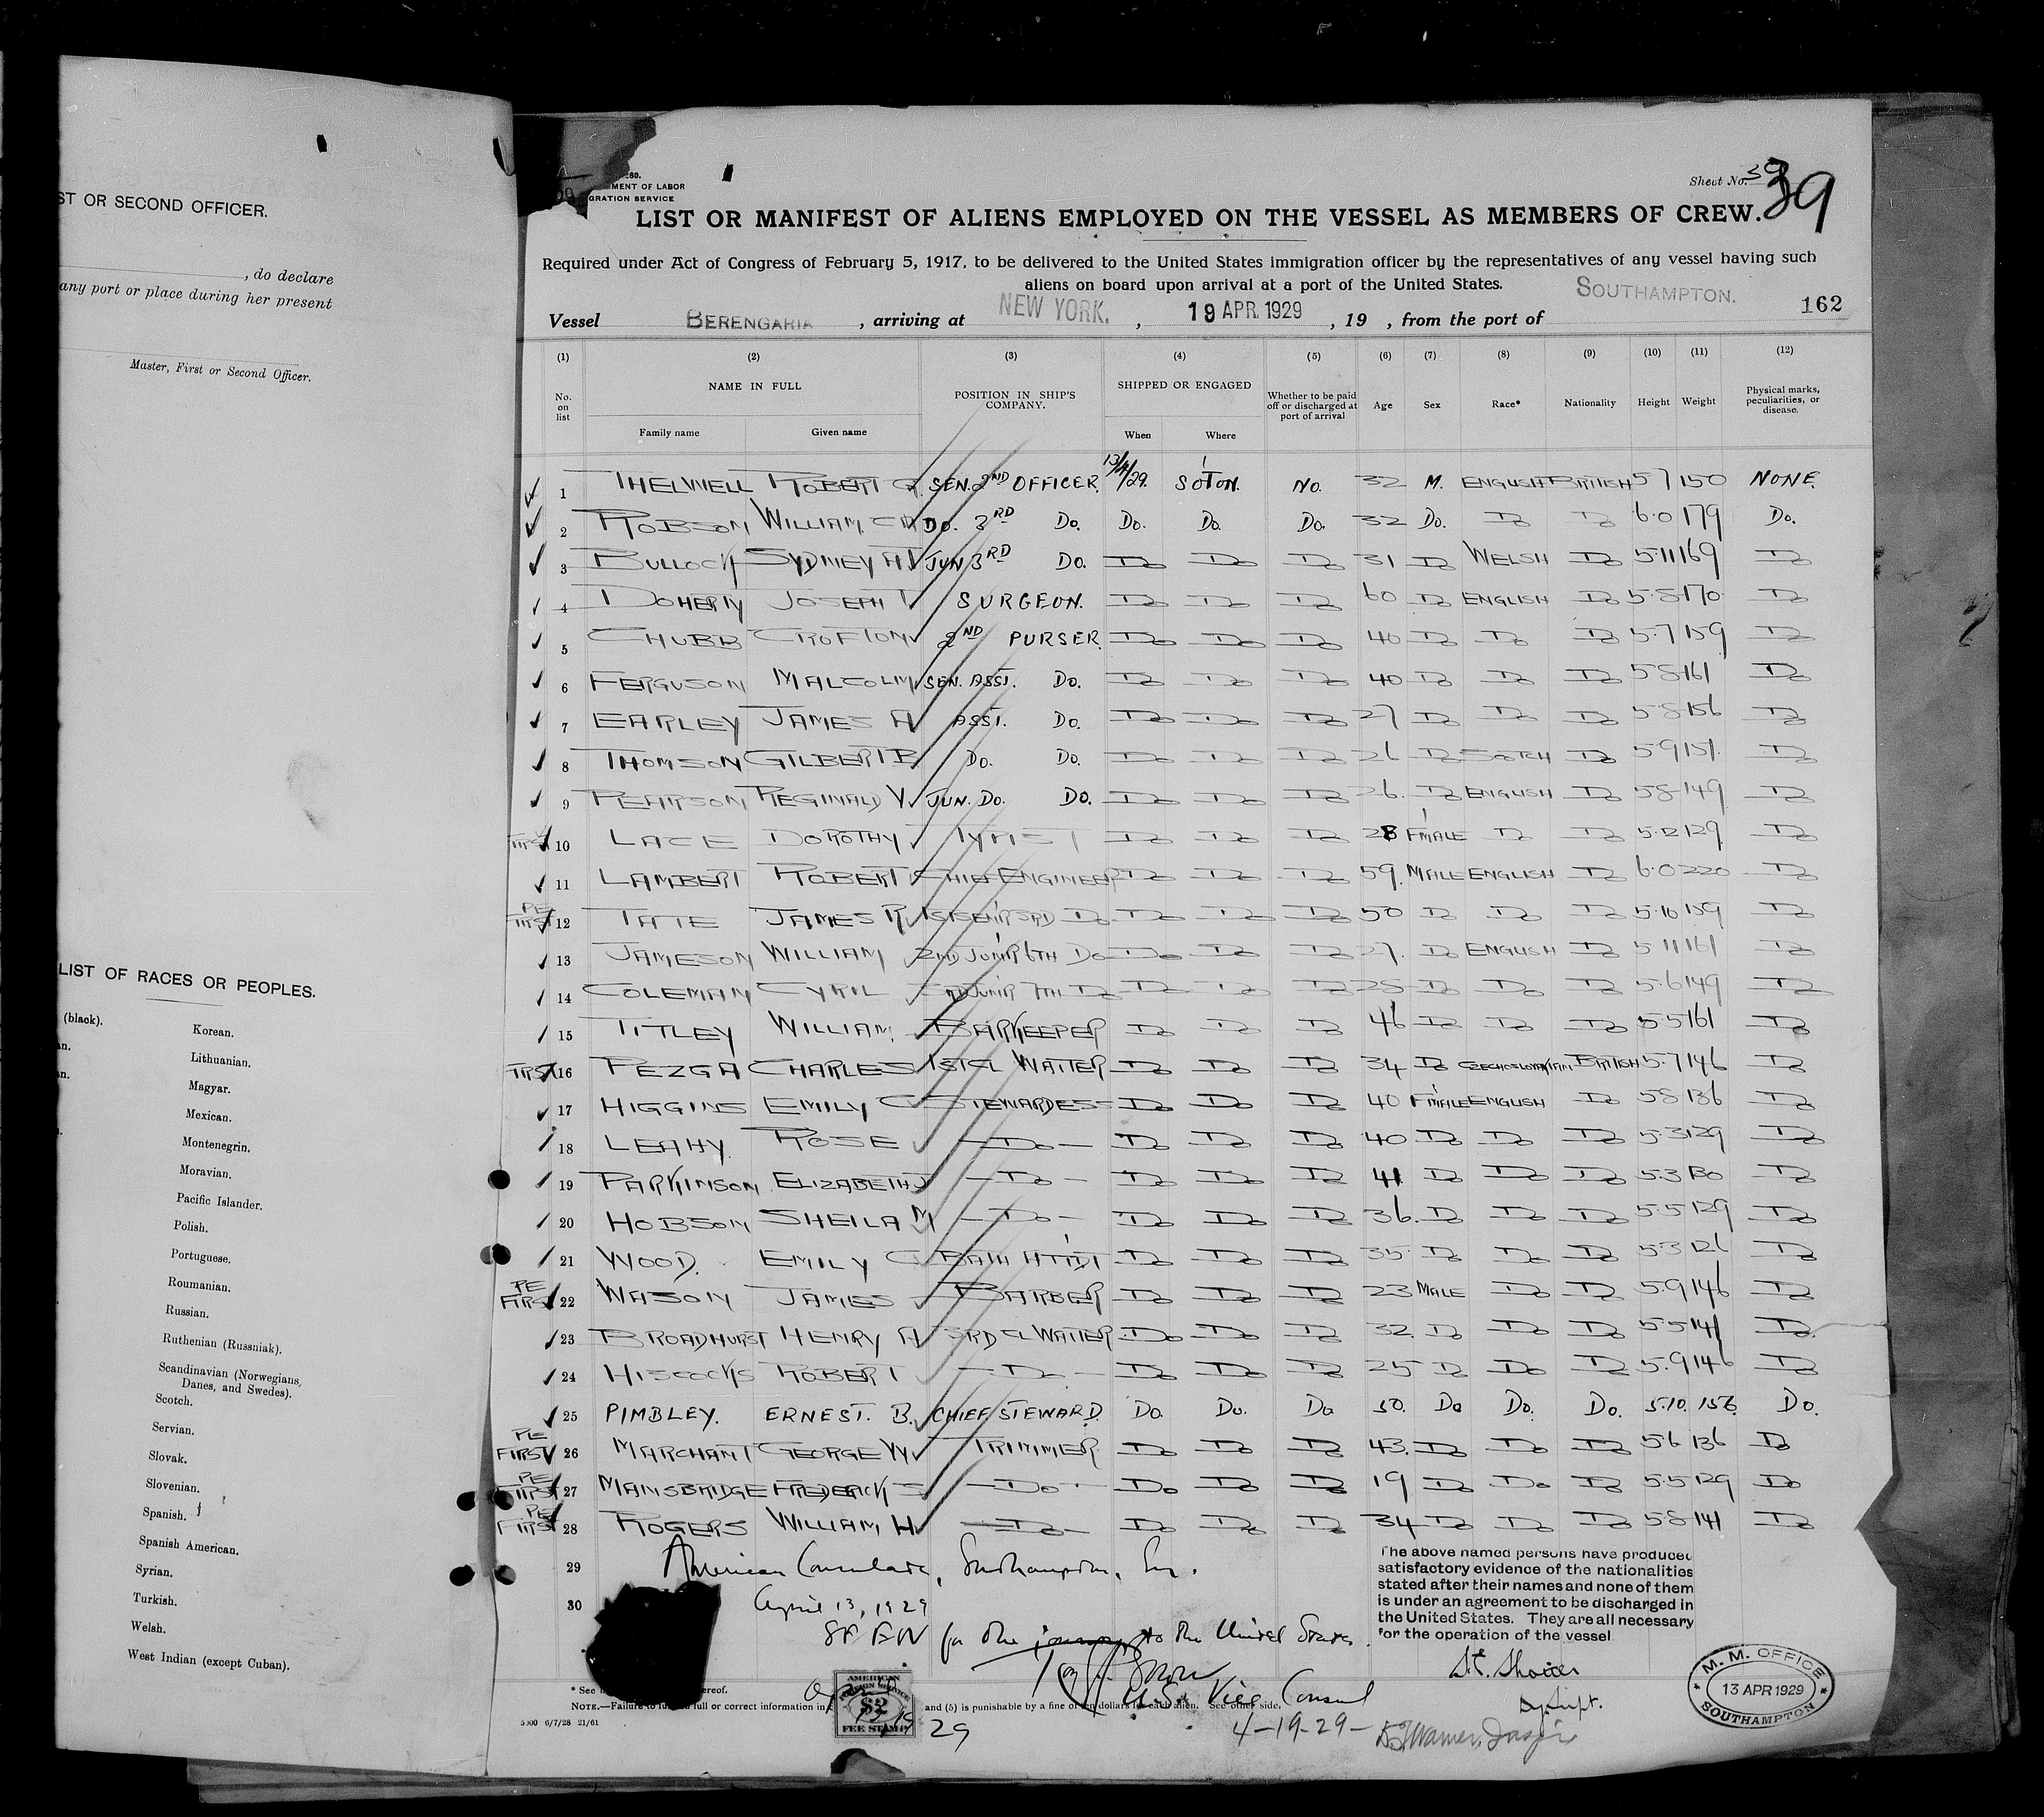 ST OR SECOND OFFICER.
, do declare
any port or place during her present
Master, First or Second Officer.
LIST OF RACES OR PEOPLES.
(black).
Korean.
Lithuanian.
Magyar.
Mexican.
Montenegrin.
Moravian.
Pacific Islander.
Polish.
Portuguese.
Roumanian.
Russian.
Ruthenian (Russniak).
Scandinavian (Norwegians,
Danes, and Swedes).
Scotch.
Servian.
Slovak.
Slovenian.
Spanish.
Spanish American.
Syrian.
Turkish.
Welsh.
West Indian (except Cuban).
MENT OF LABOR
GRATION SERVICE
Sheet No. 39
39
LIST OR MANIFEST OF ALIENS EMPLOYED ON THE VESSEL AS MEMBERS OF CREW.
Required under Act of Congress of February 5, 1917, to be delivered to the United States immigration officer by the representatives of any vessel having such
aliens on board upon arrival at a port of the United States.
Vessel BERENGARIA, arriving at NEW YORK., 19 APR. 1929, 19 , from the port of SOUTHAMPTON. 162
(1) (2) (3) (4) (5) (6) (7) (8) (9) (10) (11) (12)
No. on list NAME IN FULL Family name Given name POSITION IN SHIP'S COMPANY. SHIPPED OR ENGAGED When Where Whether to be paid off or discharged at port of arrival Age Sex Race* Nationality Height Weight Physical marks, peculiarities, or disease.
1 THELWELL ROBERT G. SEN. 2ND OFFICER. 13/4/29. SOTON. NO. 32 M. ENGLISH BRITISH 5.7 150 NONE.
2 ROBSON WILLIAM DO. 3RD DO. DO. DO. DO. 32 DO. DO DO 6.0 179 DO.
3 BULLOCK SYDNEY JUN 3RD DO. DO DO DO 31 DO WELSH DO 5.11 169 DO
4 DOHERTY JOSEPH SURGEON. DO DO DO 60 DO ENGLISH DO 5.8 170 DO
5 CHUBB CROFTON 2ND PURSER. DO DO DO 40 DO DO DO 5.7 159 DO
6 FERGUSON MALCOLM SEN. ASST. DO. DO DO DO 40 DO DO DO 5.8 161 DO
7 EARLEY JAMES A ASST. DO. DO DO DO 27 DO DO DO 5.8 156 DO
8 THOMSON GILBERT B DO. DO. DO DO DO 26 DO SCOTCH DO 5.9 151 DO
9 PEARSON REGINALD V JUN. DO. DO. DO DO DO 26. DO ENGLISH DO 5.8 149 DO
10 LACE DOROTHY TYPIST DO DO DO 28 F'MALE DO DO 5.2 129 DO
11 LAMBERT ROBERT CHIEF ENGINEER DO DO DO 59. MALE ENGLISH DO 6.0 220 DO
PE FIRST 12 TATE JAMES R 1ST SEN'R 3RD DO DO DO DO 50 DO DO DO 5.10 159 DO
13 JAMESON WILLIAM 2ND JUN'R 6TH DO DO DO DO 27. DO ENGLISH DO 5.11 161 DO
14 COLEMAN CYRIL 3RD JUN'R 7TH DO DO DO DO 25 DO DO DO 5.6 149 DO
15 TITLEY WILLIAM BARKEEPER DO DO DO 46 DO DO DO 5.5 161 DO
16 PEZGA CHARLES 1ST CL WAITER DO DO DO 34 DO CZECHOSLOVAKIAN BRITISH 5.7 146 DO
17 HIGGINS EMILY C STEWARDESS DO DO DO 40 F'MALE ENGLISH DO 5.8 136 DO
18 LEAHY. ROSE DO DO DO DO 40 DO DO DO 5.3 129 DO
19 PARKINSON ELIZABETH J DO DO DO DO 41 DO DO DO 5.3 130 DO
20 HOBSON SHEILA M DO DO DO DO 36. DO DO DO 5.5 129 DO
21 WOOD. EMILY G BATH ATT'DT DO DO DO 35 DO DO DO 5.3 126 DO
PE FIRST 22 WASON JAMES BARBER DO DO DO 23 MALE DO DO 5.9 146 DO
23 BROADHURST HENRY A 3RD CL WAITER DO DO DO 32. DO DO DO 5.5 141 DO
24 HISCOCKS ROBERT DO DO DO DO 25 DO DO DO 5.9 146 DO
25 PIMBLEY. ERNEST. B. CHIEF STEWARD. DO. DO. DO 50. DO DO. DO. 5.10. 156. DO.
PE FIRST 26 MARCHANT GEORGE W TRIMMER DO DO DO 43. DO DO DO 5.6 136 DO
PE FIRST 27 MANSBRIDGE FREDERICK S DO DO DO DO 19 DO DO DO 5.5 129 DO
PE FIRST 28 ROGERS WILLIAM H DO DO DO DO 34 DO DO DO 5.8 141 DO
29 American Consulate, Southampton, Eng.
30 April 13, 1929
SEEN for the journey to the United States.
U.S. Vice Consul
The above named persons have produced
satisfactory evidence of the nationalities
stated after their names and none of them
is under an agreement to be discharged in
the United States. They are all necessary
for the operation of the vessel
Dy. Supt.
M. M. OFFICE
13 APR 1929
SOUTHAMPTON
* See
ereof.
NOTE.—Failure to full or correct information in and (5) is punishable by a fine of ten dollars for each alien. See other side.
AMERICAN
FOREIGN SERVICE
$2
FEE STAMP
29
5000 6/7/28 21/61
4-19-29-